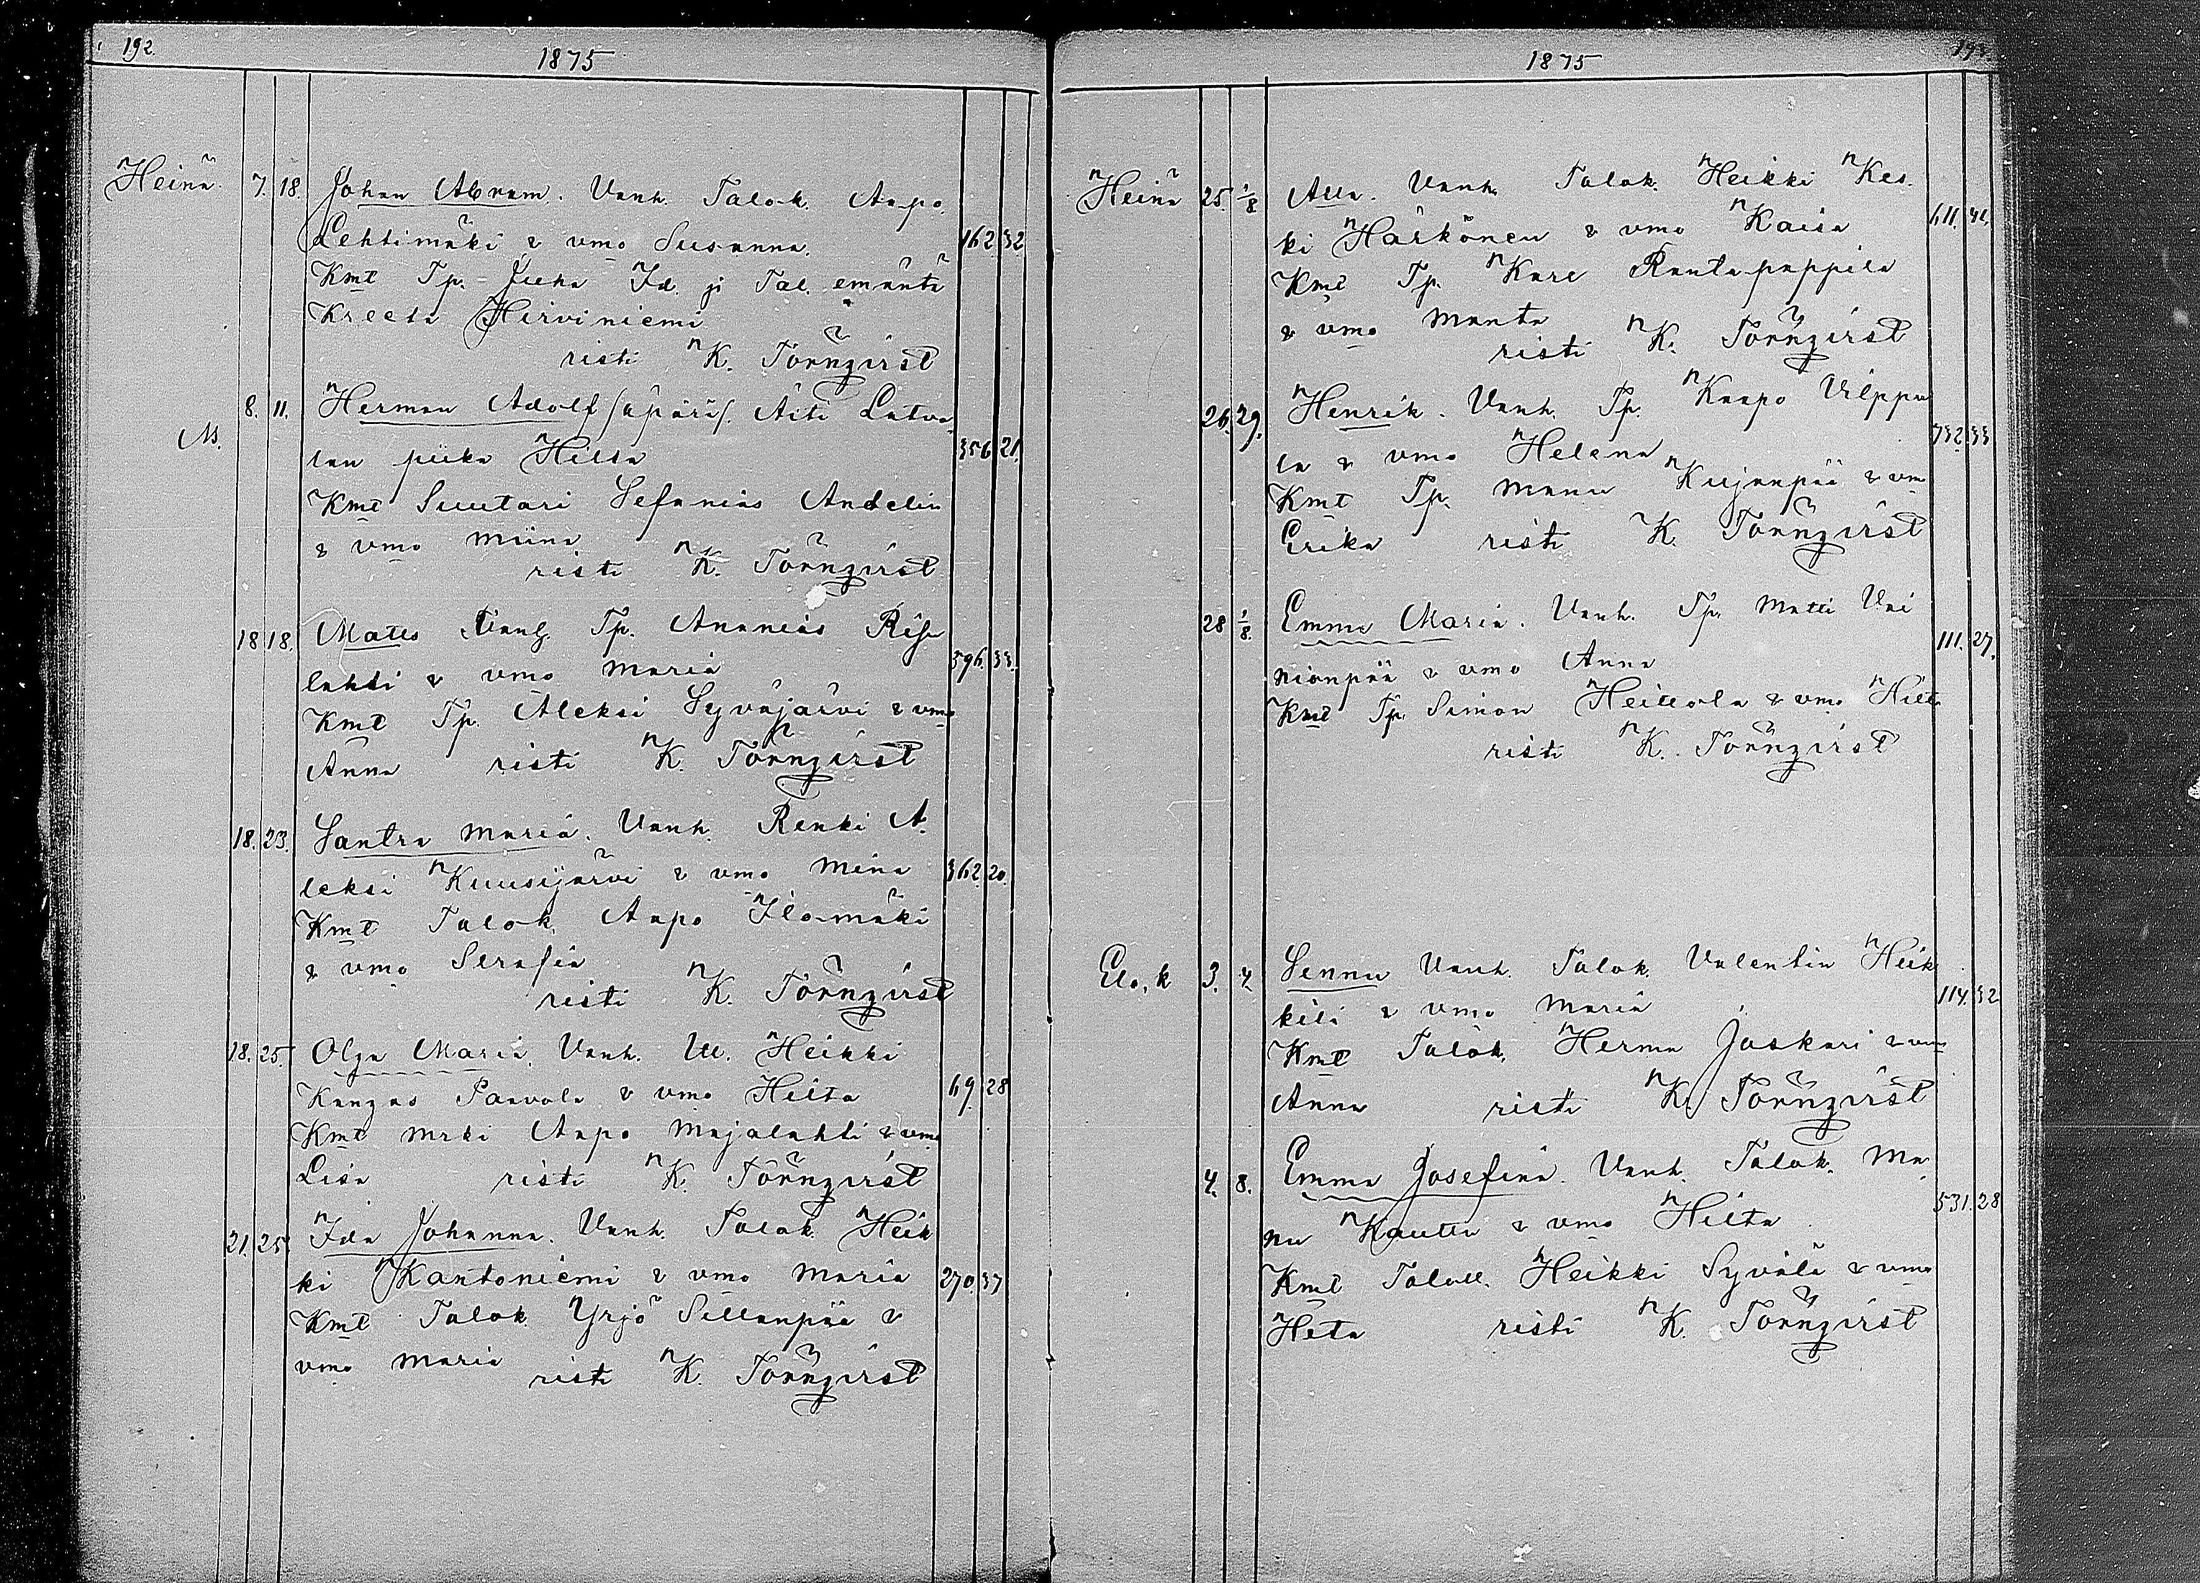 192
1875
Heinä 7. 18. Johan Abram. Vanh. Talok. Aapo
Lehtimäki & vmo Susanna. 162. 32
Kmt Tp. Juha Id. ji Tal. emäntä
Kreeta Hirviniemi
risti K. Törnqvist
8. 11. Herman Adolf /äpärä/. Äiti Latva
M. lan piika Hilta 356 21.
Kmt Suutari Sefanias Andelin
& vmo Miina
risti K. Törnqvist
18 18. Matts Vanh. Tp. Ananias
lahti & vmo Maria 596. 33.
Kmt Tp. Aleksi Syväjärvi & vmo
Anna risti K. Törnqvist
18. 23. Santra Maria. Vanh. Renki A.
leksi Kuusijärvi & vmo Mina 362. 20.
Kmt Talok. Aapo Ilomäki
& vmo Serafia
risti K. Törnqvist
18. 25. Olga Maria. Vanh. Heikki
Kangas Paavola & vmo Hilta 69. 28
Kmt Mrki Aapo Majalahti & vmo
Lisa risti K. Törnqvist
21. 25. Ida Johanna. Vanh. Talok. Heik
ki Kantoniemi & vmo Maria 270. 37
Kmt Talok. Yrjö Sillanpää &
vmo Maria risti K. Törnqvist
1875
Heinä 25. 1/8 Alla. Vanh. Talok. Heikki Kes.
ki Härkönen & vmo Kaisa 611. 41.
Kmt Tp. Karl Rantapappila
& vmo Manta
risti K. Törnqvist
26. 29. Henrik. Vanh. Tp. Kaapo Vilppo
la & vmo Helena 732. 33
Kmt Tp. Manu Kujanpää & vm
Erika risti K. Törnqvist
28 1/8. Emma Maria. Vanh. Tp. Matti Vai
nionpää & vmo Anna 111. 27.
Kmt Tp. Simon Heittola & vmo Hilta
risti K. Törnqvist
Elo, k 3. 4. Sennu Vanh. Talok. Valentin Heik
kilä & vmo Maria 114. 32
Kmt Talok. Herman Jaskari & vmo
Anna risti K. Törnqvist
4. 8. Emma Josefina. Vanh. Talok. Ma
nu Kautta & vmo Hilta 531. 28
Kmt Talok. Heikki Syvälä & vmo
Heta risti K. Törnqvist